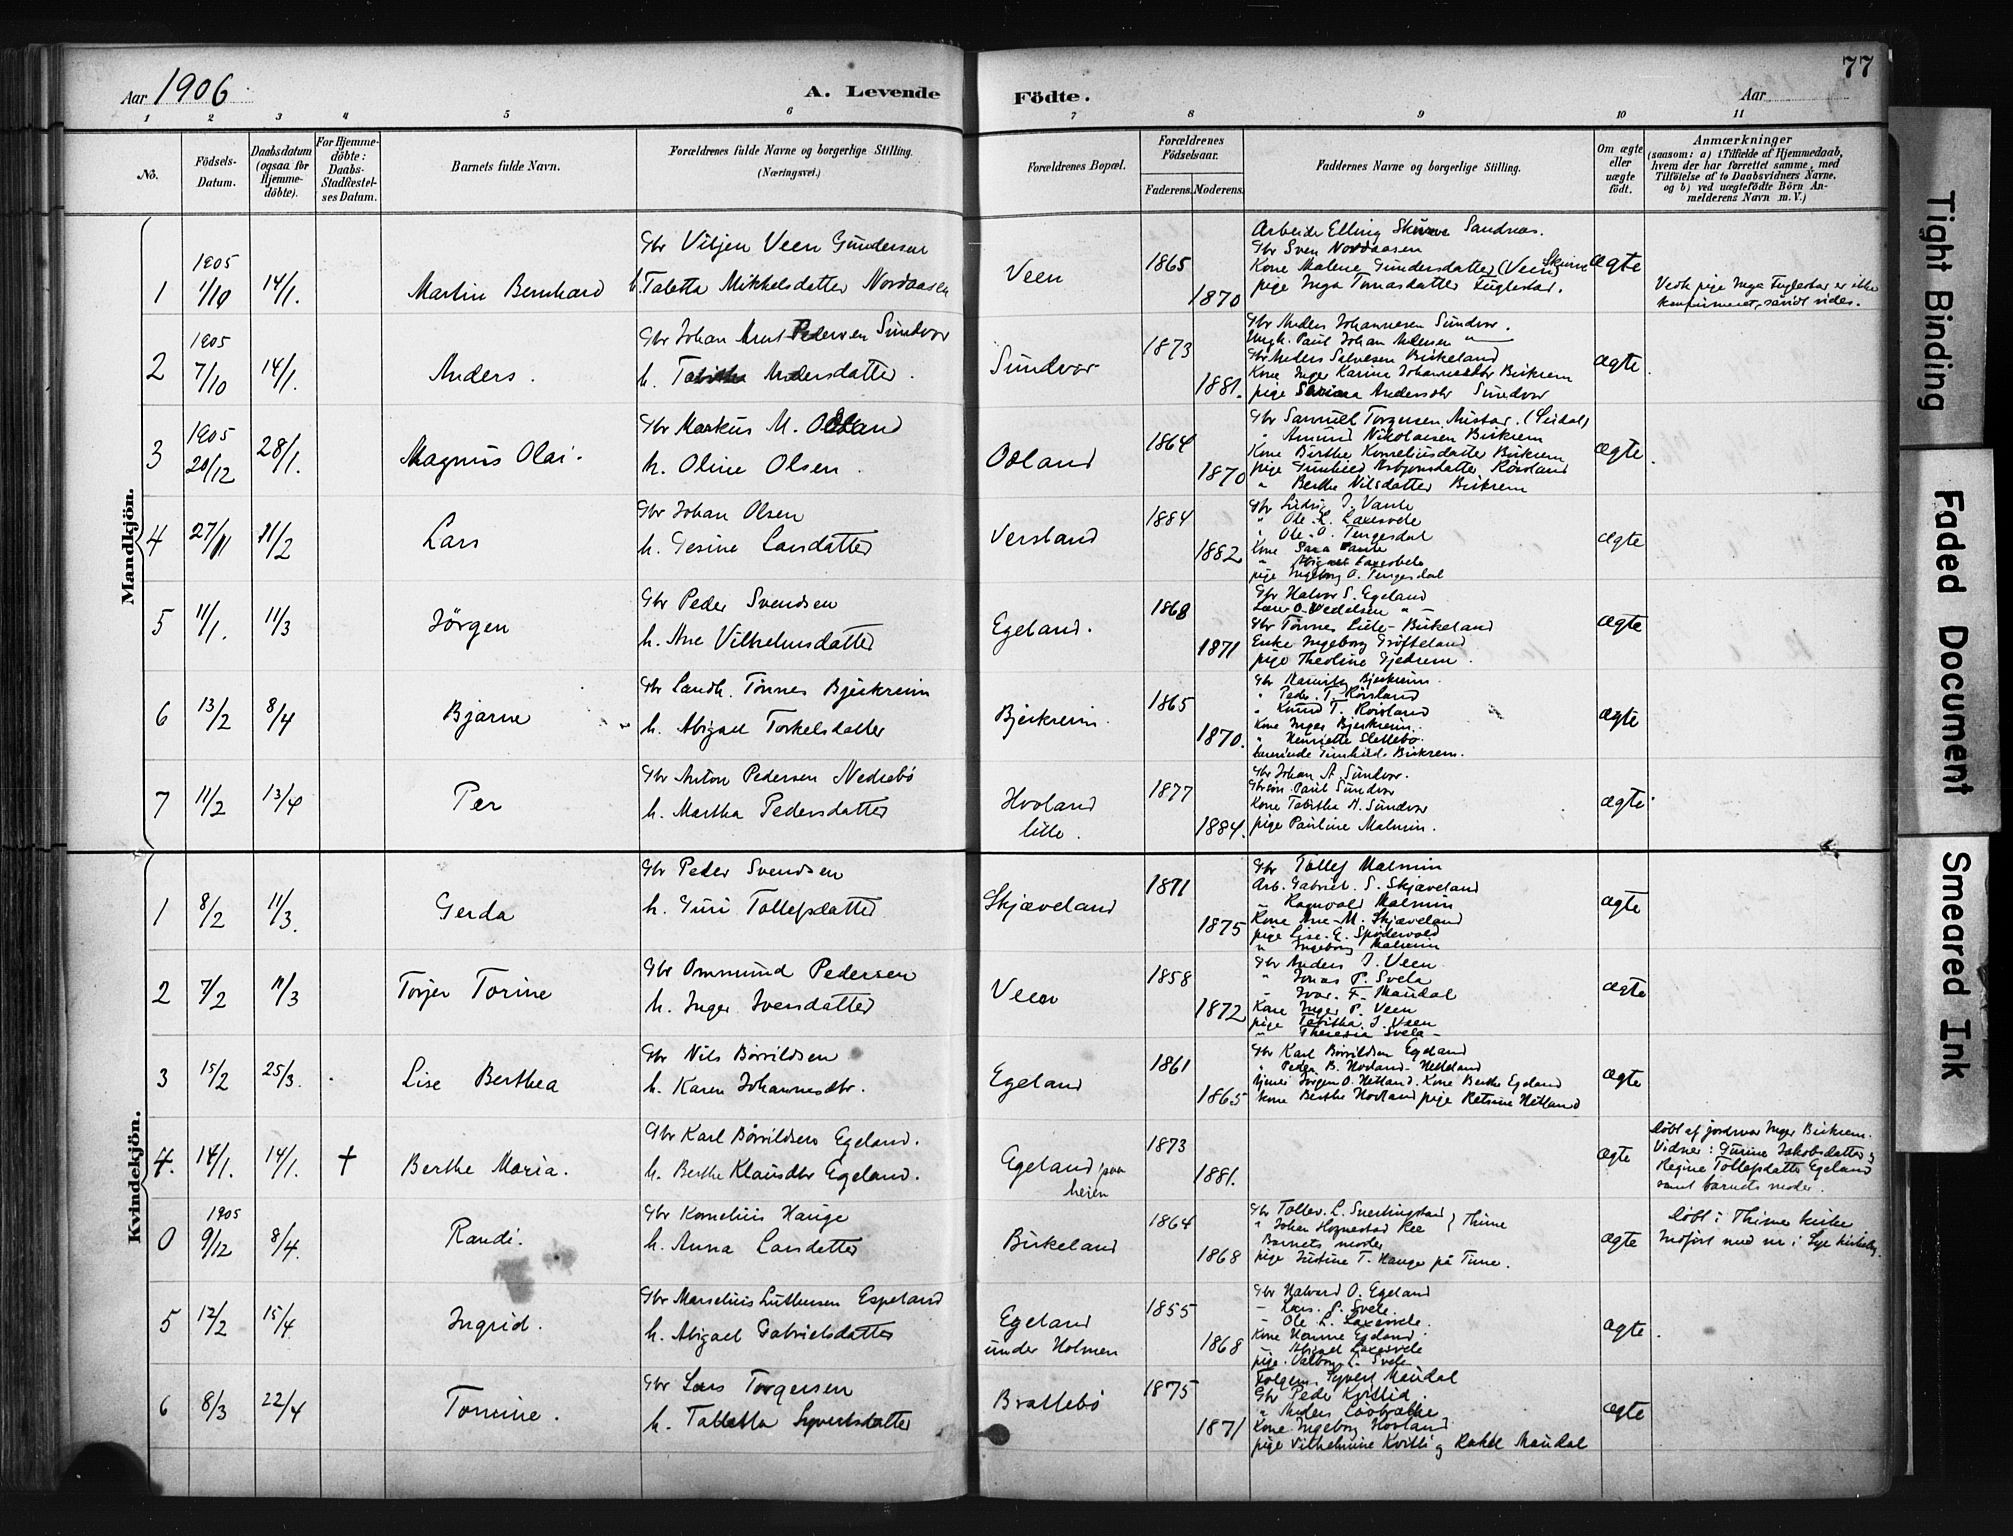 Aar 1906.
A. Levende
Födte.
Aar
77
1 2 3 4 5 6 7 8 9 10 11
No.
Födsels-Datum.
Daabsdatum (ogsaa for Hjemme-döbte).
For Hjemme-döbte: Daabs-Stadfæstel-ses Datum.
Barnets fulde Navn.
Forældrenes fulde Navne og borgerlige Stilling.
(Næringsvei.)
Forældrenes Bopæl.
Forældrenes Födselsaar.
Faderens.
Moderens.
Faddernes Navne og borgerlige Stilling.
Om ægte eller uægte födt.
Anmærkninger
(saasom: a) i Tilfælde af Hjemmedaab,
hvem der har forrettet samme, med
Tilföielse af to Daabsvidners Navne,
og b) ved uægtefödte Börn An-
melderens Navn m. V.)
Mandkjön.
1 1905 1/10 14/1. Martin Bernhard
Gbr Viljen Veen Gundersen
h. Taletta Mikkelsdatter Nordaasen
Veen 1865 1870
Arbeide Elling Skurve Sandnes.
Gbr Sven Nordaasen
Kone Malene Gundersdatter (Veen) Skurve
pige Inga Tomasdatter Fuglestad.
ægte
Vedk pige Inga Fuglestad er ikke
konfirmeret, såvidt vides.
2 1905 7/10 14/1. Anders.
Gbr Johan Arnt Pedersen Sundvor
h. Tabitha Andersdatter.
Sundvor 1873 1881.
Gbr Anders Johannesen Sundvor.
Ungk. Paul Johan Andersen
Gbr Anders Salvesen Birkeland
Kone Inger Karine Johannesdtr Birkrem
pige Andersdtr Sundvor
ægte.
3 1905 20/12 28/1. Magnus Olai.
Gbr Markus M. Odland
h. Oline Olsen.
Odland 1864 1870
Gbr Samuel Torgersen Austad. (Lidal)
" Amund Nikolaisen Birkrem
Kone Birthe Korneliusdatter Birkrem
pige Gunhild Asbjørnsdatter Røisland
" Berthe Nilsdatter Birkrem
ægte.
4 27/11 11/2 Lars
Gbr Johan Olsen
h. Gesine Larsdatter
Versland 1884 1882
Gbr J. Vante
" Ole L. Laxesvele
" Ole O. Tengesdal
Kone Sara Vante
" Abigael Laxesvele
pige Ingeborg O. Tengesdal
ægte
5 11/1. 11/3 Jörgen
Gbr Peder Svendsen
h. Ane Vilhelmsdatter
Egeland. 1868 1871
Gbr Halvor S. Egeland
Lærer O. Vedelsen " –
Gbr Tønnes Lille-Birkeland
Enke Ingeborg Grøfteland
pige Theoline Gjedrem.
ægte
6 13/2 8/4 Bjarne
Gbr Landh. Tönnes Bjerkreim
h. Abigael Torkelsdatter
Bjerkreim. 1865 1870.
Gbr Bjerkreim.
" Peder T. Røisland
" Knud T. Roisland
Kone Inger Bjerkreim.
" Henriette Slettebø.
Lærerinde Gunhild Birkrem.
ægte
7 11/2 13/4 Per
Gbr Anton Pedersen Nedrebö
h. Martha Pedersdatter
Hovland lille. 1877 1884.
Gbr Johan A Sundvor.
Gbrsøn Paul Sundvor
Kone Tabitha A. Sundvor
pige Pauline Malmin.
ægte
Kvindekjön.
1 8/2 11/3. Gerda
Gbr Peder Svendsen
h. Guri Tollefsdatter
Skjæveland 1871 1875
Gbr Tollef Malmin
Arb. Gabriel S. Skjæveland
– Ragnvald Malmin
Kone Ane M. Skjæveland
pige Lise E. Spødervold
" Ingeborg Malmin
ægte
2 7/2 11/3 Torjer Torine
Gbr Ommund Pedersen
h. Inger Iversdatter
Veen 1858 1872
Gbr Anders J. Veen
" Jonas P. Svela
– Ivar F. Maudal
Kone Inger P. Veen
pige Tabitha J. Veen
" Theresia Svela –
ægte
3 15/2 25/3. Lise Berthea
Gbr Nils Börrildsen
h. Karen Johannesdtr.
Egeland 1861 1865
Gbr Karl Börrildsen Egeland
" Peder B. Hovland – Netteland
tjener Jörgen O. Netland. Kone Berthe Egeland
Kone Berthe Hovland pige Retsine Netland
ægte
4. 14/1. 14/1. † Berthe Maria.
Gbr Karl Börrildsen Egeland.
h. Berthe Klausdtr Egeland.
Egeland paa heien 1873 1881.
ægte
Döbt af jordmor Inger Birkrem.
Vidner: Gurine Jakobsdatter og
Regine Tollefsdatter Egeland
samt barnets moder.
0 1905 9/12 8/4. Randi.
Gbr Kornelius Hauge
h. Anna Larsdatter
Birkeland 1864 1868
Gbr Tollev L. Svertingstad } Thime
" Johan Hognestad Ree
Barnets moder
pige Justine T. Hauge på Time.
ægte
Döbt i Thime kirke
Indført med nr i Lye kirkebog.
5 12/2 15/4 Ingrid.
Gbr Marselius Luthersen Espeland
h. Abigael Gabrielsdatter
Egeland under Holmen 1855 1868
Gbr Halvard O. Egeland
– Lars P. Svele.
– Ole L. Laxesvele.
Kone Hanne Egeland
– Abigael Laxesvele
pige. Valborg L. Svele
ægte.
6 8/3 22/4 Tomine.
Gbr Lars Torgersen
h. Talletta Syvertsdatter
Bratlebö 1875 1871
Følgem. Syvert Maudal
Gbr Peder Kvitlid.
" Anders Løobrække
Kone Ingeborg Hovland
pige Vilhelmine Kvitli og Rakel Maudal
ægte
Tight Binding
Faded Document
Smeared Ink